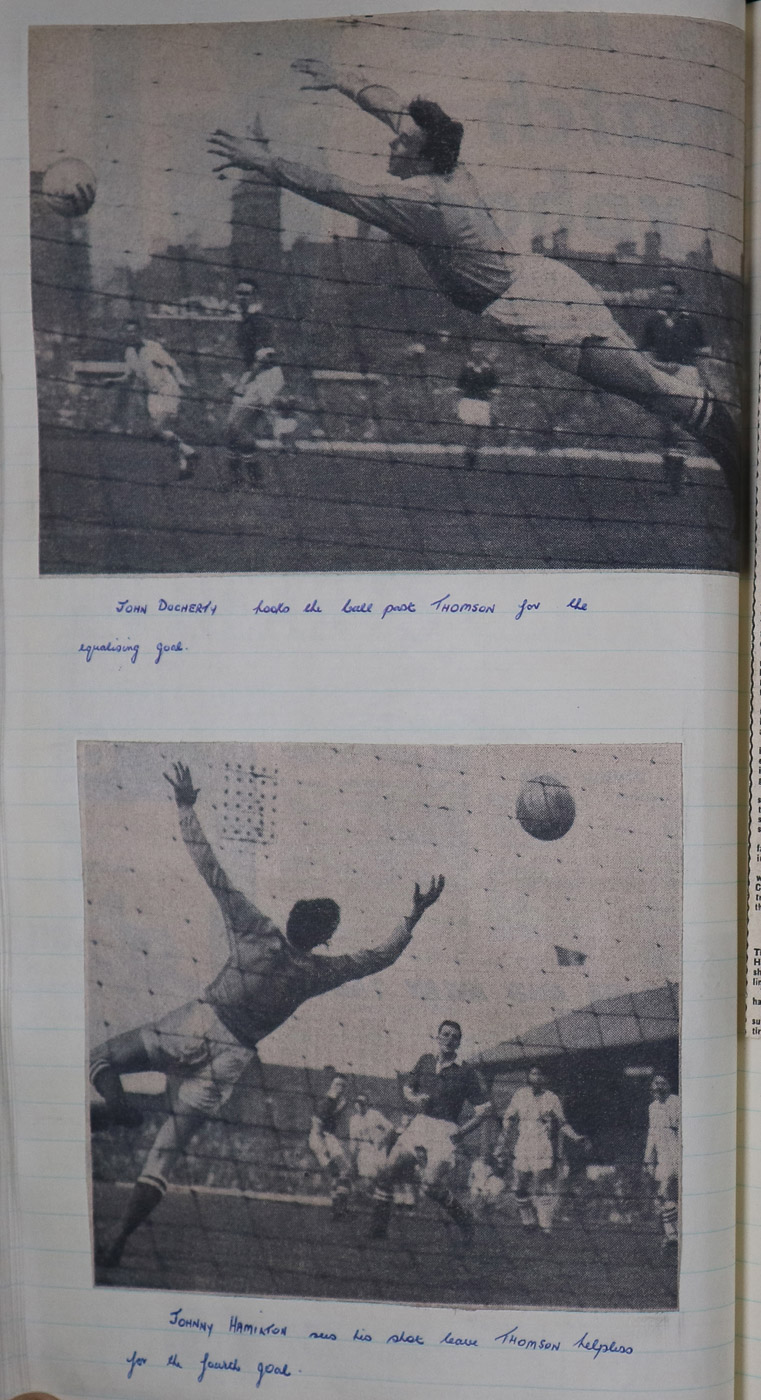 JOHN DOCHERTY hooks the ball past THOMSON for the
equalising goal.
JOHNNY HAMILTON sees his shot leave THOMSON helpless
for the fourth goal.